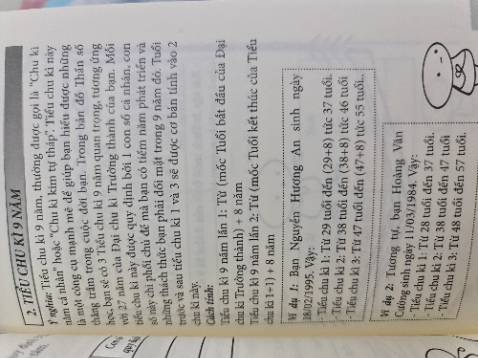 2. TIỂU CHU KÌ 9 NĂM
Ý nghĩa: Tiểu chu kì 9 năm, thường được gọi là "Chu kì
năm cá nhân" hoặc "Chu kì kim tự tháp". Tiểu chu kì này
là một công cụ mạnh mẽ để giúp bạn hiểu được những
thăng trầm trong cuộc đời bạn. Trong bản đồ Thần số
học, bạn sẽ có 3 Tiểu chu kì 9 năm quan trọng, tương ứng
với 27 năm của Đại chu kì Trưởng thành của bạn. Mỗi
tiểu chu kì này được quy định bởi 1 con số cá nhân, con
số này chi phối chủ đề mà bạn có tiềm năm phát triển và
những thách thức bạn phải đối mặt trong 9 năm đó. Tuổi
trước và sau tiểu chu kì 1 và 3 sẽ được cơ bản tính vào 2
chu kì này.
Cách tính:
Tiểu chu kì 9 năm lần 1: Từ (mốc Tuổi bắt đầu của Đại
chu kì Trưởng thành) + 8 năm
Tiểu chu kì 9 năm lần 2: Từ (mốc Tuổi kết thúc của Tiểu
chu kì 1+1) + 8 năm
Ví dụ 1: Bạn Nguyễn Hương An sinh ngày
18/02/1995. Vậy:
- Tiểu chu kì 1: Từ 29 tuổi đến (29+8) tức 37 tuổi.
- Tiểu chu kì 2: Từ 38 tuổi đến (38+8) tức 46 tuổi
- Tiểu chu kì 3: Từ 47 tuổi đến (47+8) tức 55 tuổi..
Ví dụ 2: Tương tự, bạn Hoàng Văn
Cường sinh ngày 11/03/1984. Vậy:
- Tiểu chu kì 1: Từ 28 tuổi đến 37 tuổi.
- Tiểu chu kì 2: Từ 38 tuổi đến 47 tuổi
- Tiểu chu kì 3: Từ 48 tuổi đến 57 tuổi.